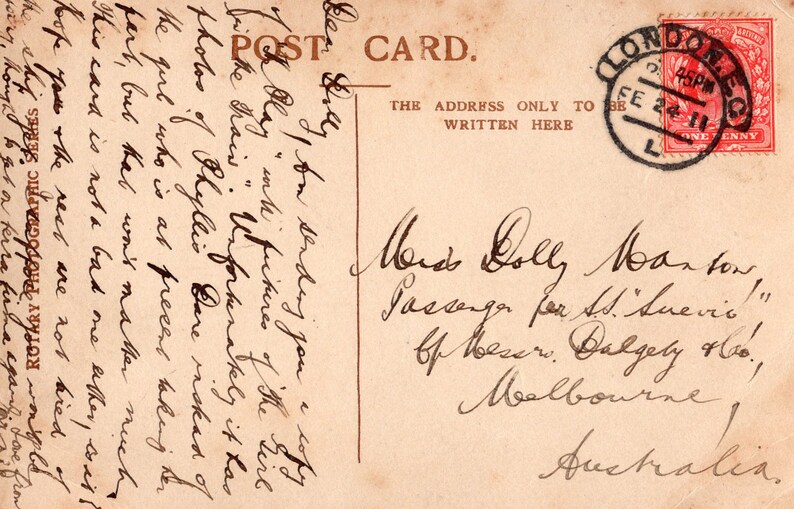 POST CARD.
THE ADDRESS ONLY TO BE
WRITTEN HERE
LONDON.E.C
45PM
FE 24 11
L
& REVENUE
ONE PENNY
ROTARY PHOTOGRAPHIC SERIES
Dear Dolly,
I am sending you a copy
of "Play" with pictures of "The Girl
in the Train". Unfortunately it has
photos of Phyllis Dare instead of
the girl who is at present taking her
part, but that won't matter much.
This card is not a bad one either, is it?
Hope you & the rest are not tired of
the ship yet. I suppose you
though, to get on terra firma again. Love from
Miss Dolly Manson,
Passenger per S.S. "Suevic"
C/o Messrs. Dalgety & Co,
Melbourne,
Australia.